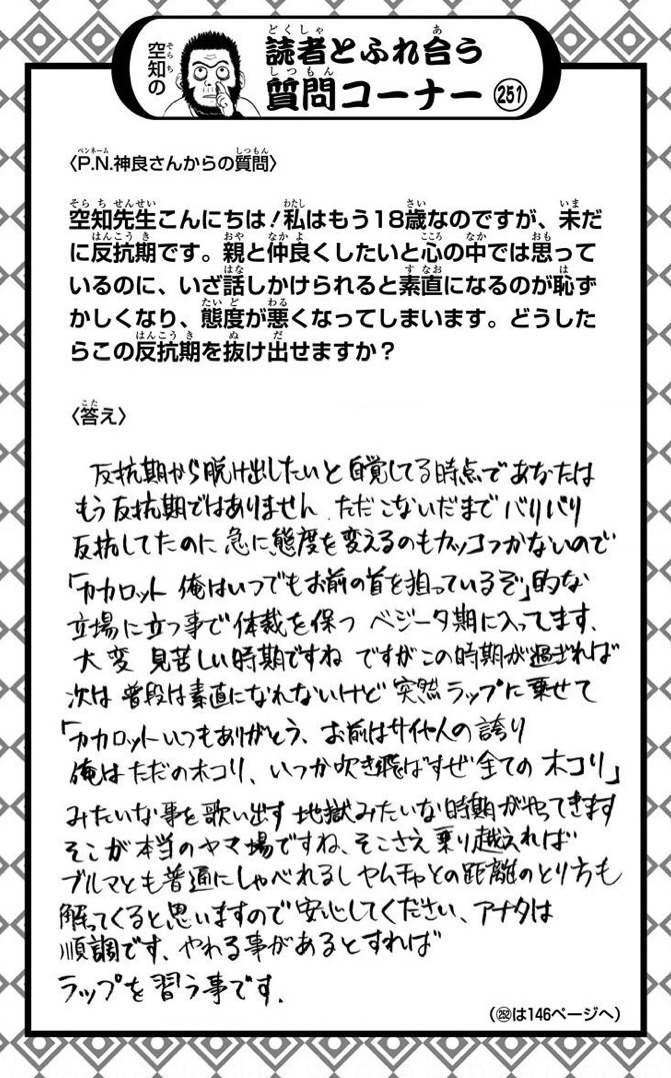 空知の
読者とふれ合う
質問コーナー 251
〈P.N.神良さんからの質問〉
空知先生こんにちは!私はもう18歳なのですが、未だ
に反抗期です。親と仲良くしたいと心の中では思って
いるのに、いざ話しかけられると素直になるのが恥ず
かしくなり、態度が悪くなってしまいます。どうした
らこの反抗期を抜け出せますか?
〈答え〉
反抗期から脱け出したいと自覚してる時点であなたは
もう反抗期ではありません。ただこないだまでバリバリ
反抗してたのに急に態度を変えるのもカッコつかないので
「カカロット 俺はいつでもお前の首を狙っているぞ」的な
立場に立つ事で体裁を保つ ベジータ期に入ってます、
大変 見苦しい時期ですね ですがこの時期が過ぎれば
次は 普段は素直になれないけど 突然ラップに乗せて
「カカロットいつもありがとう、お前はサイヤ人の誇り
俺はただの木コリ、いつか吹き飛ばすぜ全ての木コリ」
みたいな事を歌い出す地獄みたいな時期がやってきます
そこが本当のヤマ場ですね、そこさえ乗り越えれば
ブルマとも普通にしゃべれるし ヤムチャとの距離のとり方も
解ってくると思いますので安心してください、アナタは
順調です、やれる事があるとすれば
ラップを習う事です.
(252は146ページへ)